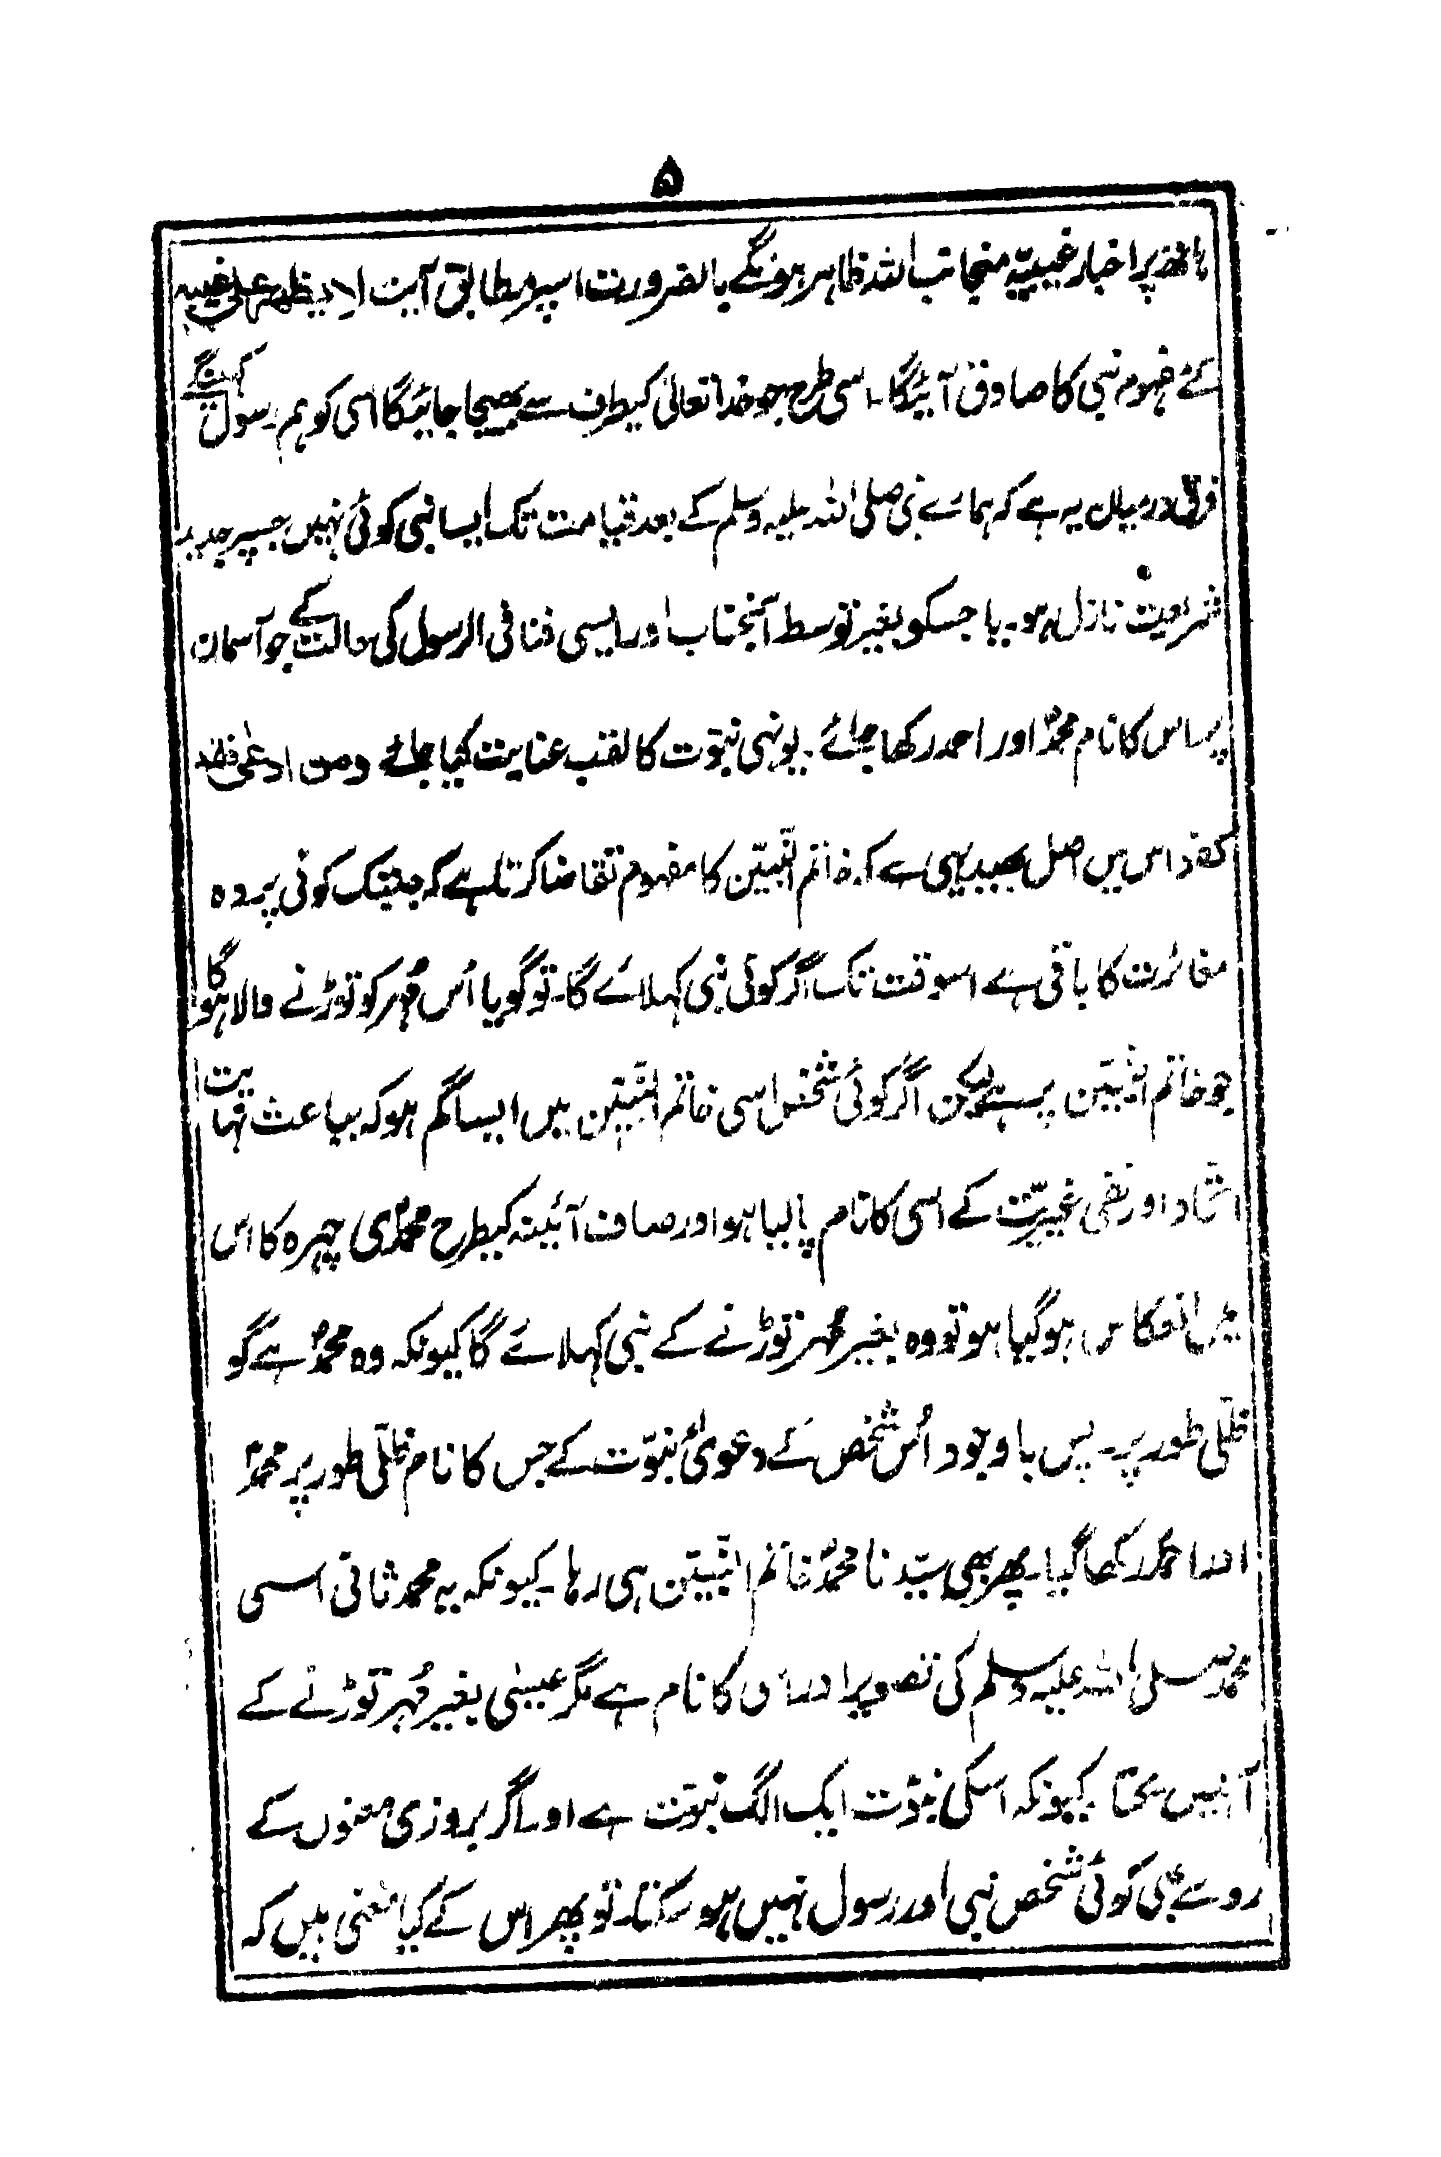 ۵
ہاتھ پر اخبار غیبیہ منجانب اللہ ظاہر ہونگے بالضرورت اسپر مطابق آیت لا یظھر علیٰ غیبہ
کے مفہوم نبی کا صادق آئیگا۔ اسی طرح جو خدا تعالیٰ کیطرف سے بھیجا جائیگا اسی کو ہم رسول کہینگے
فرق درمیان یہ ہے کہ ہمارے نبی صلی اللہ علیہ وسلم کے بعد قیامت تک ایسا نبی کوئی نہیں جسپر جدید
شریعت نازل ہو۔ یا جسکو بغیر توسط آنجناب اور ایسی فنا فی الرسول کی حالت کے جو آسمان
پر اس کا نام محمدؐ اور احمد رکھا جائے۔ یونہی نبوّت کا لقب عنایت کیا جائے ومن ادعیٰ فقد
کفر اس میں اصل بھید یہی ہے کہ خاتم النّبیّین کا مفہوم تقاضا کرتا ہے کہ جبتک کوئی پردہ
مغائرت کا باقی ہے اسوقت تک اگر کوئی نبی کہلائے گا۔ تو گویا اُس مُہر کو توڑنے والا ہوگا
جو خاتم النّبیّین پر ہے لیکن اگر کوئی شخص اسی خاتم النّبیّین میں ایسا گم ہو کہ بباعث نہایت
اتّحاد اور نفی غیریّت کے اسی کا نام پالیا ہو اور صاف آئینہ کیطرح محمدؐی چہرہ کا اس
میں انعکاس ہوگیا ہو تو وہ بغیر مُہر توڑنے کے نبی کہلائے گا کیونکہ وہ محمدؐ ہے گو
ظلّی طور پر۔ پس باوجود اُس شخص کے دعویٰ نبوّت کے جس کا نام ظلّی طور پر محمدؐ
اور احمدؐ رکھا گیا۔ پھر بھی سیّدنا محمدؐ خاتم النّبیّین ہی رہا۔ کیونکہ یہ محمدؐ ثانی اسی
محمد صلی اللہ علیہ وسلم کی تصویر اور اسی کا نام ہے مگر عیسیٰ بغیر مُہر توڑنے کے
آ نہیں سکتا۔ کیونکہ اسکی نبوّت ایک الگ نبوّت ہے اور اگر بروزی معنوں کے
رو سے بھی کوئی شخص نبی اور رسول نہیں ہو سکتا۔ تو پھر اس کے کیا معنی ہیں کہ